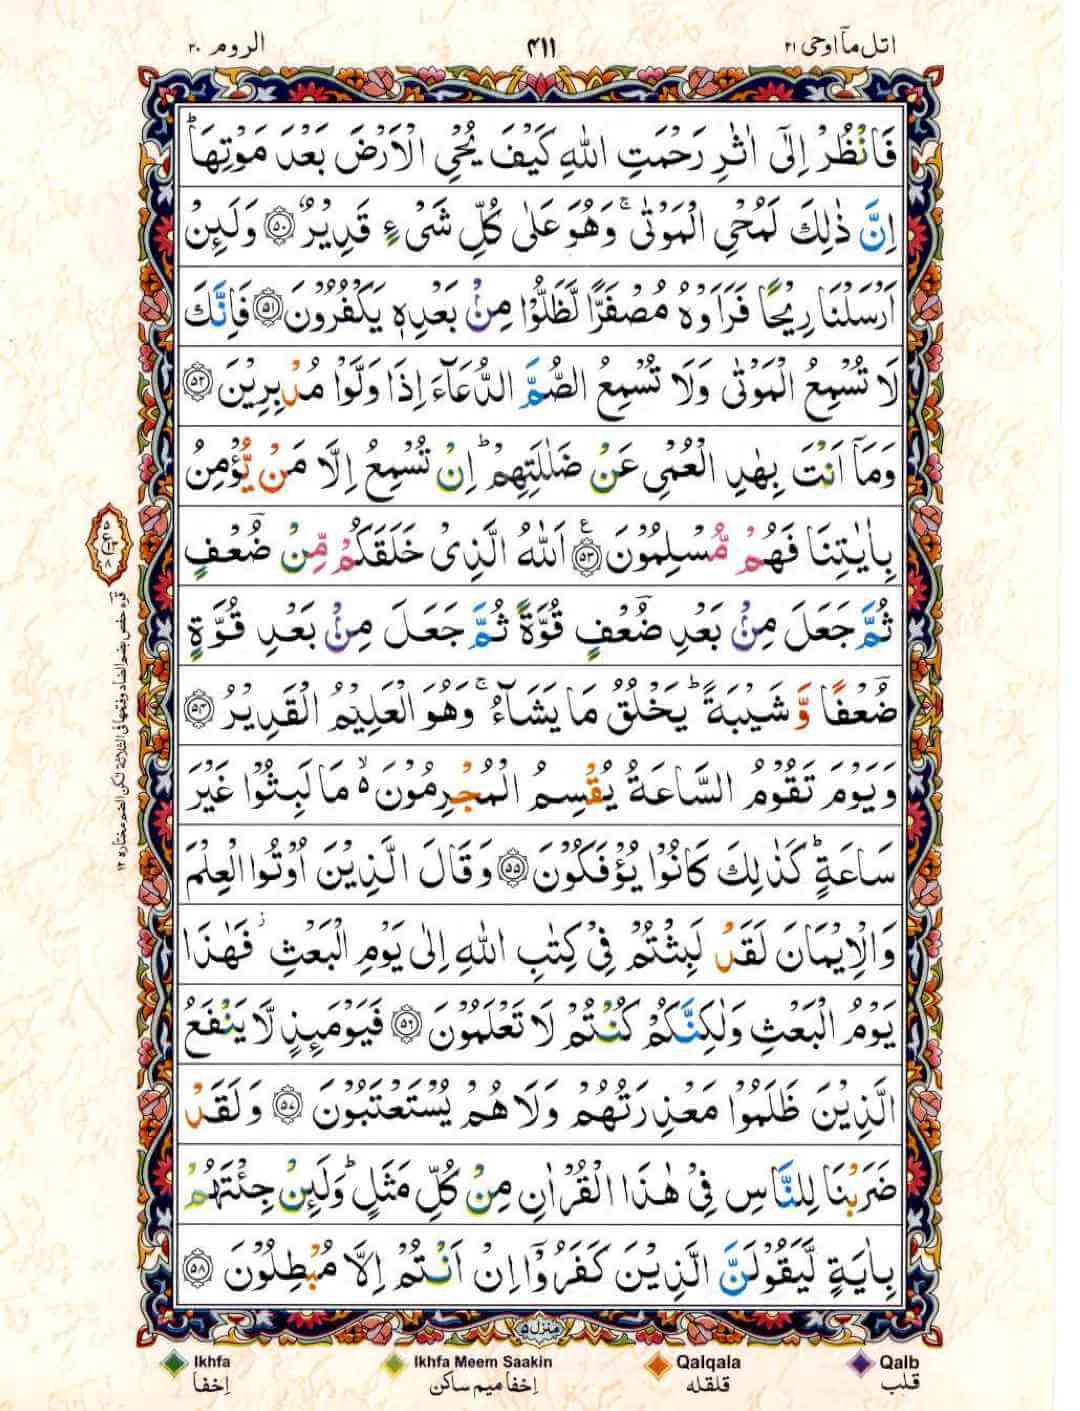 اتل ماۤ اوحی ۲۱
۴۱۱
الروم ۳۰
فَانْظُرْ اِلٰۤى اٰثٰرِ رَحْمَتِ اللّٰهِ كَیْفَ یُحْیِ الْاَرْضَ بَعْدَ مَوْتِهَا ؕ
اِنَّ ذٰلِكَ لَمُحْیِ الْمَوْتٰى ۚ وَهُوَ عَلٰى كُلِّ شَیْءٍ قَدِیْرٌ ۝۵۰ وَلَىِٕنْ
اَرْسَلْنَا رِیْحًا فَرَاَوْهُ مُصْفَرًّا لَّظَلُّوْا مِنْۢ بَعْدِهٖ یَكْفُرُوْنَ ۝۵۱ فَاِنَّكَ
لَا تُسْمِعُ الْمَوْتٰى وَلَا تُسْمِعُ الصُّمَّ الدُّعَآءَ اِذَا وَلَّوْا مُدْبِرِیْنَ ۝۵۲
وَمَاۤ اَنْتَ بِهٰدِ الْعُمْیِ عَنْ ضَلٰلَتِهِمْ ؕ اِنْ تُسْمِعُ اِلَّا مَنْ یُّؤْمِنُ
بِاٰیٰتِنَا فَهُمْ مُّسْلِمُوْنَ ۝۵۳ اَللّٰهُ الَّذِیْ خَلَقَكُمْ مِّنْ ضُؔعْفٍ
ثُمَّ جَعَلَ مِنْۢ بَعْدِ ضُؔعْفٍ قُوَّةً ثُمَّ جَعَلَ مِنْۢ بَعْدِ قُوَّةٍ
ضُؔعْفًا وَّ شَیْبَةً ؕ یَخْلُقُ مَا یَشَآءُ ۚ وَهُوَ الْعَلِیْمُ الْقَدِیْرُ ۝۵۴
وَیَوْمَ تَقُوْمُ السَّاعَةُ یُقْسِمُ الْمُجْرِمُوْنَ ۙ۬ مَا لَبِثُوْا غَیْرَ
سَاعَةٍ ؕ كَذٰلِكَ كَانُوْا یُؤْفَكُوْنَ ۝۵۵ وَقَالَ الَّذِیْنَ اُوْتُوا الْعِلْمَ
وَالْاِیْمَانَ لَقَدْ لَبِثْتُمْ فِیْ كِتٰبِ اللّٰهِ اِلٰى یَوْمِ الْبَعْثِ ؗ فَهٰذَا
یَوْمُ الْبَعْثِ وَلٰكِنَّكُمْ كُنْتُمْ لَا تَعْلَمُوْنَ ۝۵۶ فَیَوْمَىِٕذٍ لَّا یَنْفَعُ
الَّذِیْنَ ظَلَمُوْا مَعْذِرَتُهُمْ وَلَا هُمْ یُسْتَعْتَبُوْنَ ۝۵۷ وَلَقَدْ
ضَرَبْنَا لِلنَّاسِ فِیْ هٰذَا الْقُرْاٰنِ مِنْ كُلِّ مَثَلٍ ؕ وَلَىِٕنْ جِئْتَهُمْ
بِاٰیَةٍ لَّیَقُوْلَنَّ الَّذِیْنَ كَفَرُوْۤا اِنْ اَنْتُمْ اِلَّا مُبْطِلُوْنَ ۝۵۸
۵ ع ۸
قرء حفص بضم الضاد وفتحها فی الثلاثة لكن الضم مختاره ۱۲
منزل ۵
Ikhfa
اِخفا
Ikhfa Meem Saakin
اِخفا میم ساکن
Qalqala
قلقله
Qalb
قلب